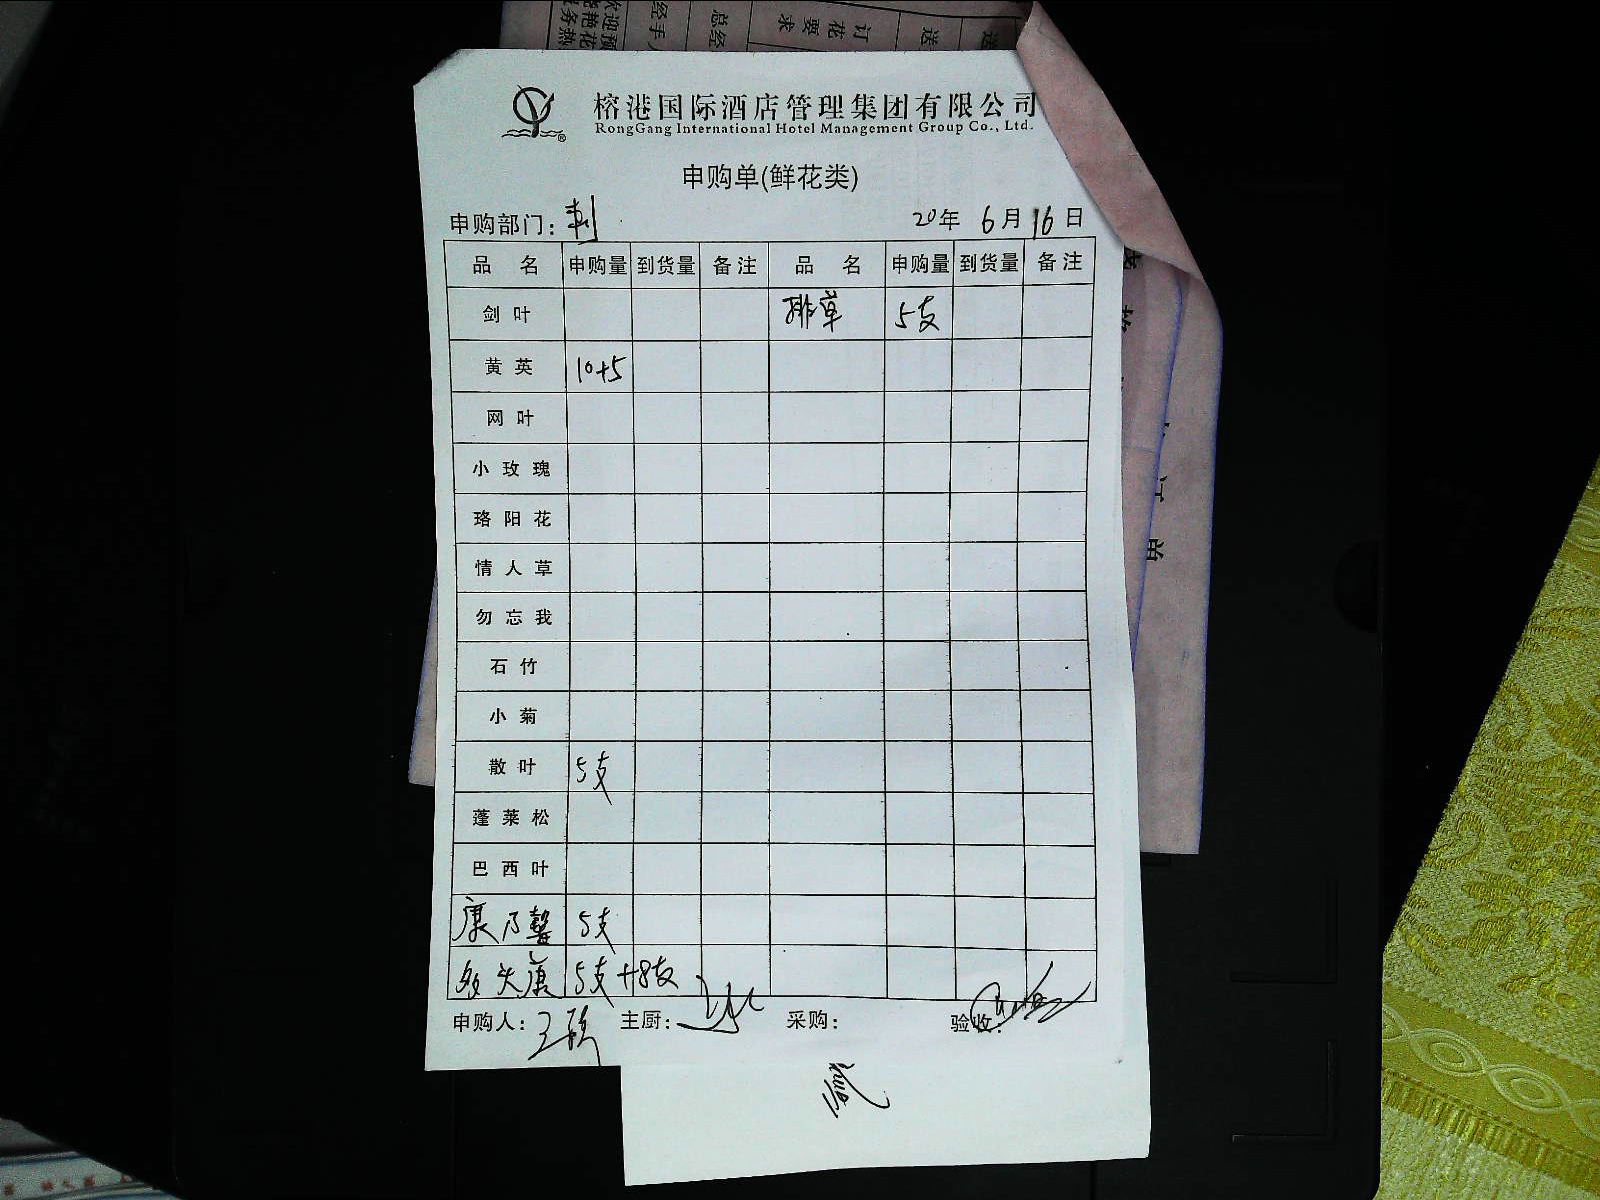 榕港国际酒店管理集团有限公司
RongGang International Hotel Management Group Co., Ltd.
申购单(鲜花类)
申购部门: 刺 20年 6月16日
品名 申购量 到货量 备注 品名 申购量 到货量 备注
剑叶 排草 5支
黄英 10+5
网叶
小玫瑰
珞阳花
情人草
勿忘我
石竹
小菊
散叶 5支
蓬莱松
巴西叶
康乃馨 5支
多头康 5支+8支
申购人: 主厨: 采购: 验收: